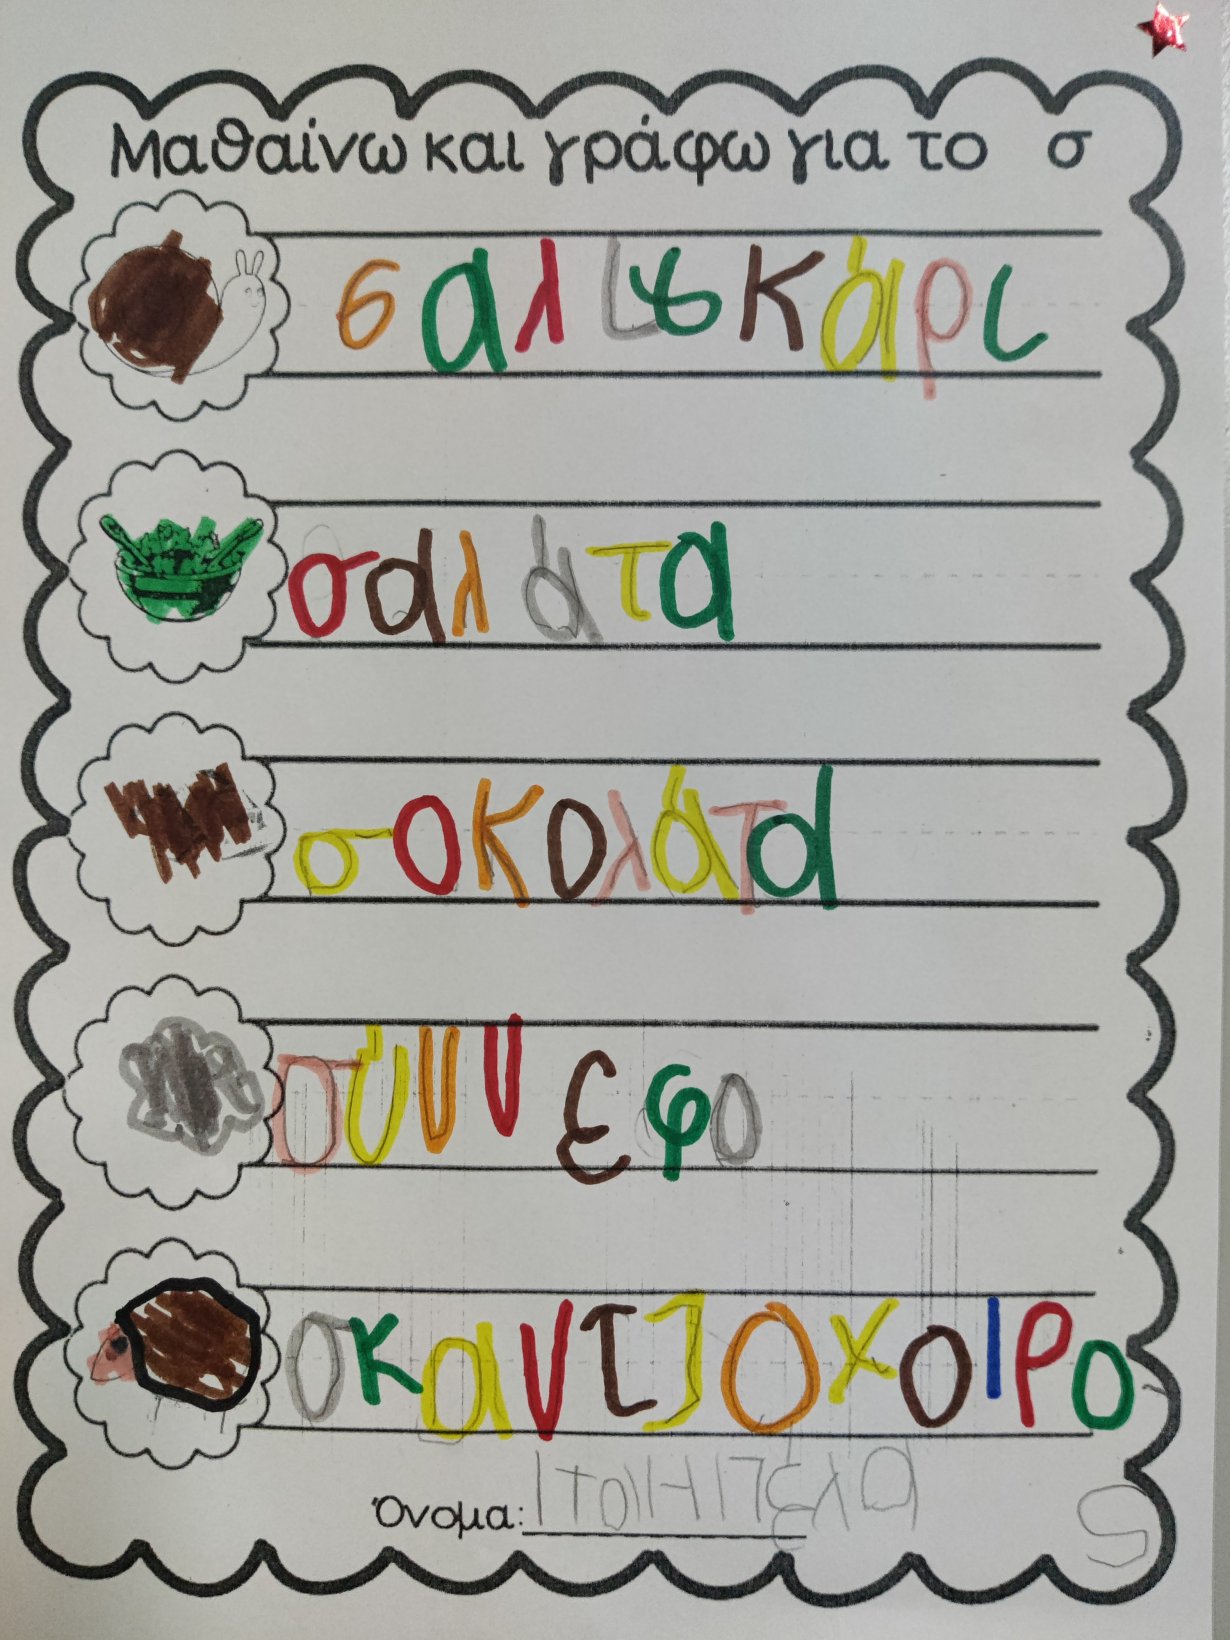 Μαθαίνω και γράφω για το σ
σαλιγκάρι
σαλάτα
σοκολάτα
σύννεφο
σκαντζοχοιρο
Όνομα: